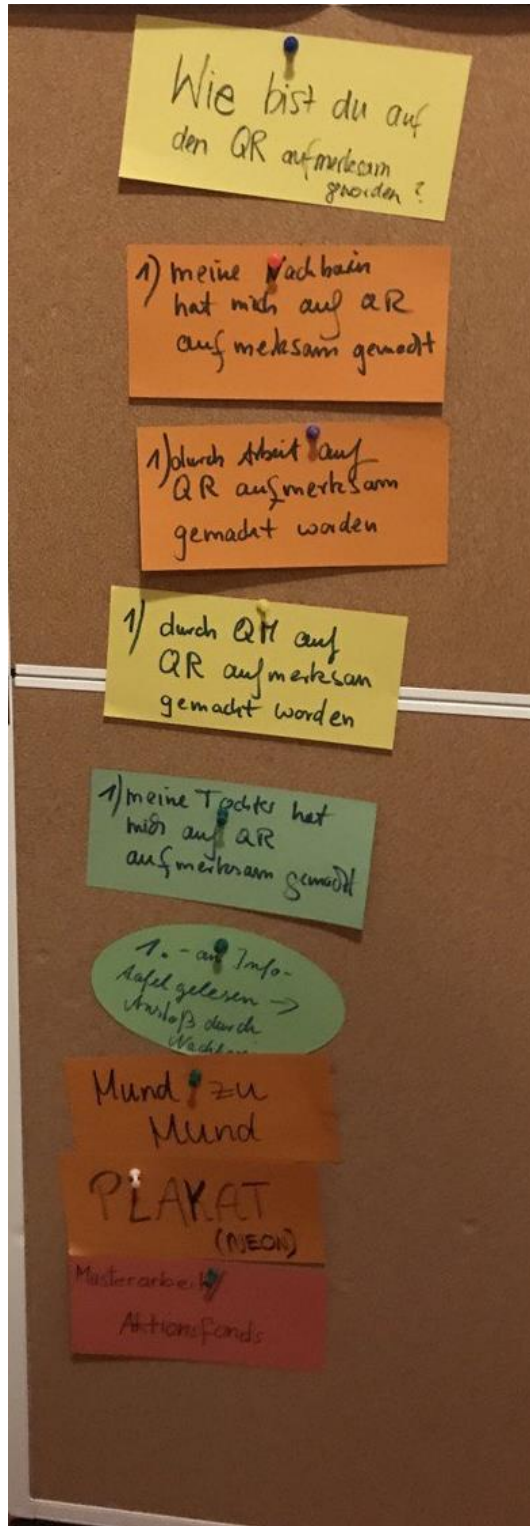 Wie bist du auf
den QR aufmerksam
geworden?
1) meine Nachbarin
hat mich auf QR
aufmerksam gemacht
1) durch Arbeit auf
QR aufmerksam
gemacht worden
1) durch QM auf
QR aufmerksam
gemacht worden
1) meine Tochter hat
mich auf QR
aufmerksam gemacht
1. - an Info-
tafel gelesen →
Anstoß durch
Mund zu
Mund
PLAKAT
(NEON)
Masterarbeit/
Aktionsfonds